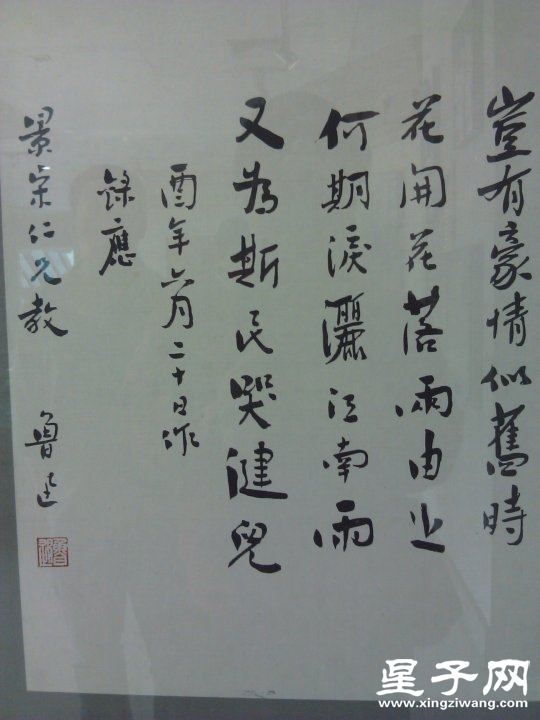 豈有豪情似舊時
花開花落兩由之
何期淚灑江南雨
又為斯民哭健兒
酉年六月二十日作
錄應
景宋仁兄教 魯迅
星子网
www.xingziwang.com